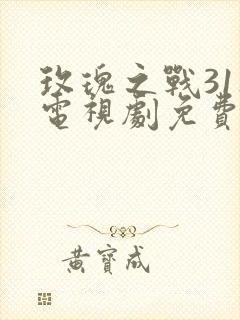 玫瑰之戰31
電視劇免費
黃寶成